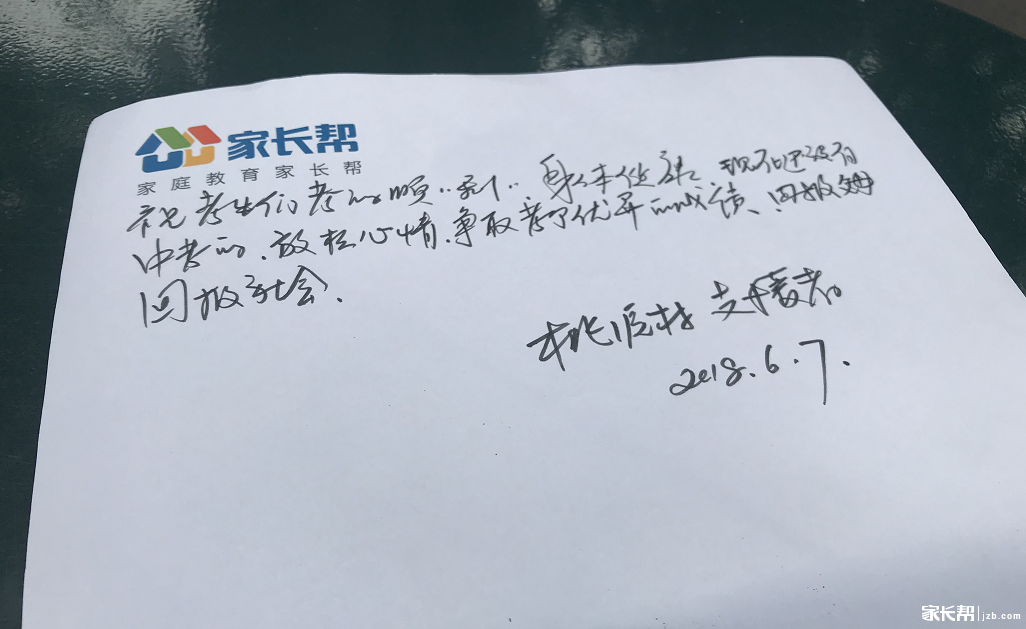 家长帮
家庭教育家长帮
祝考生们考的顺利. 身体健康 现在还没有
中考的、放松心情、争取考个优异的成绩、回报父母
回报社会、
桃 支援者
2018.6.7.
家长帮 jzb.com